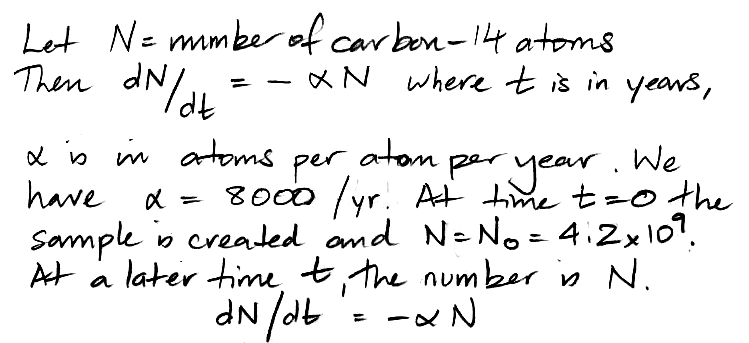 Let N = number of carbon-14 atoms
Then dN/dt = - αN where t is in years,
α is in atoms per atom per year. We
have α = 8000 /yr. At time t=0 the
sample is created and N=N₀ = 4.2x10⁹.
At a later time t, the number is N.
dN/dt = -αN